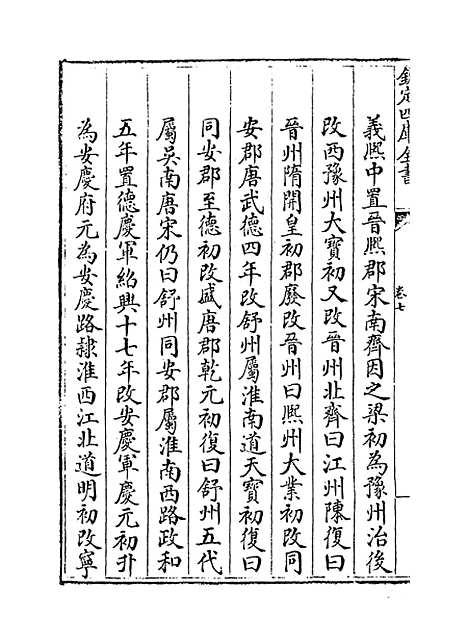 欽定四庫全書
卷七
義熙中置晉熙郡宋南齊因之梁初為豫州治後
改西豫州大寶初又改晉州北齊曰江州陳復曰
晉州隋開皇初郡廢改晉州曰熙州大業初改同
安郡唐武德四年改舒州屬淮南道天寶初復曰
同安郡至德初改盛唐郡乾元初復曰舒州五代
屬吳南唐宋仍曰舒州同安郡屬淮南西路政和
五年置德慶軍紹興十七年改安慶軍慶元初升
為安慶府元為安慶路隸淮西江北道明初改寧